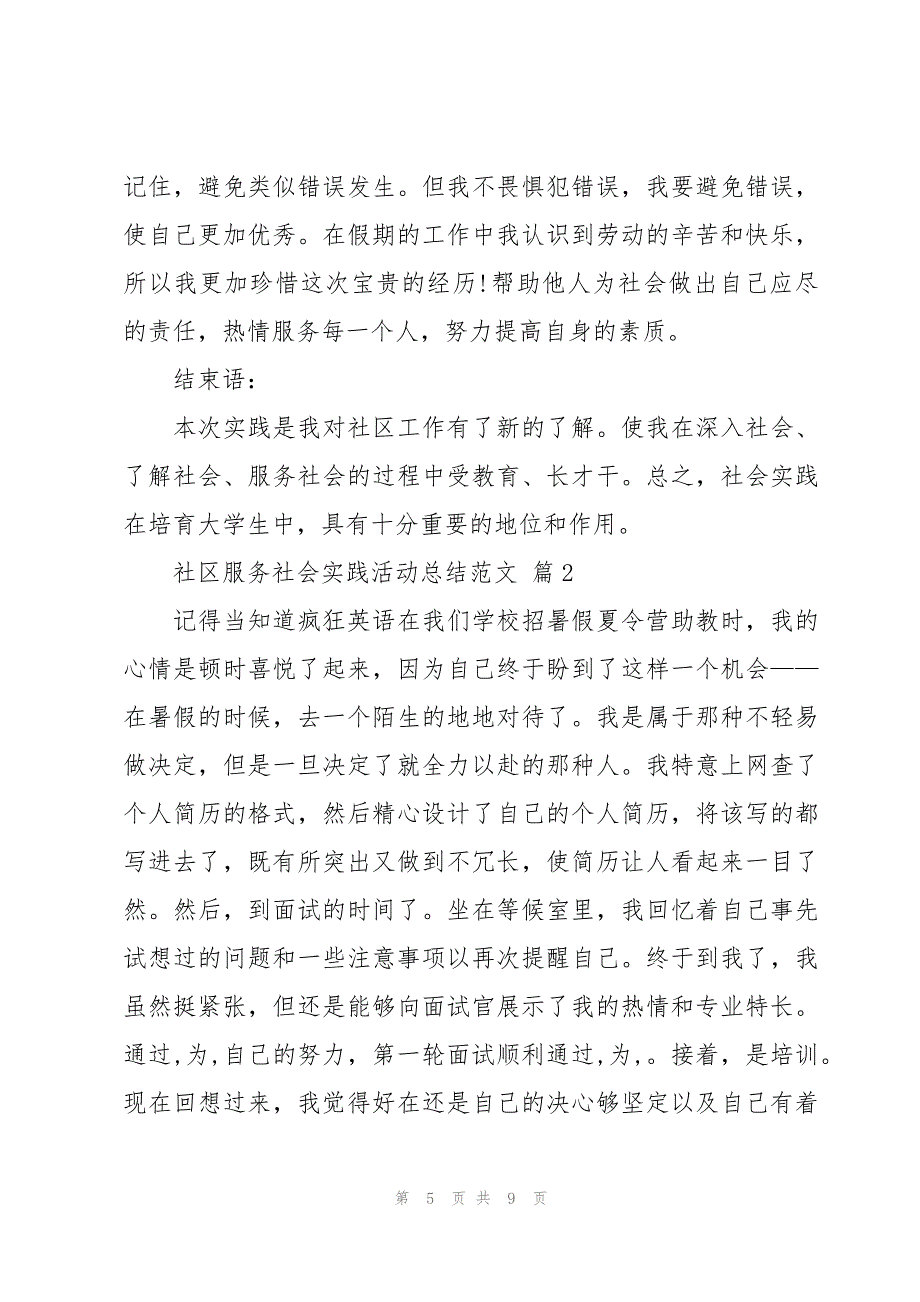 记住，避免类似错误发生。但我不畏惧犯错误，我要避免错误，
使自己更加优秀。在假期的工作中我认识到劳动的辛苦和快乐，
所以我更加珍惜这次宝贵的经历!帮助他人为社会做出自己应尽
的责任，热情服务每一个人，努力提高自身的素质。
结束语：
本次实践是我对社区工作有了新的了解。使我在深入社会、
了解社会、服务社会的过程中受教育、长才干。总之，社会实践
在培育大学生中，具有十分重要的地位和作用。
社区服务社会实践活动总结范文 篇2
记得当知道疯狂英语在我们学校招暑假夏令营助教时，我的
心情是顿时喜悦了起来，因为自己终于盼到了这样一个机会——
在暑假的时候，去一个陌生的地地对待了。我是属于那种不轻易
做决定，但是一旦决定了就全力以赴的那种人。我特意上网查了
个人简历的格式，然后精心设计了自己的个人简历，将该写的都
写进去了，既有所突出又做到不冗长，使简历让人看起来一目了
然。然后，到面试的时间了。坐在等候室里，我回忆着自己事先
试想过的问题和一些注意事项以再次提醒自己。终于到我了，我
虽然挺紧张，但还是能够向面试官展示了我的热情和专业特长。
通过,为,自己的努力，第一轮面试顺利通过,为,。接着，是培训。
现在回想过来，我觉得好在还是自己的决心够坚定以及自己有着
第 5 页 共 9 页